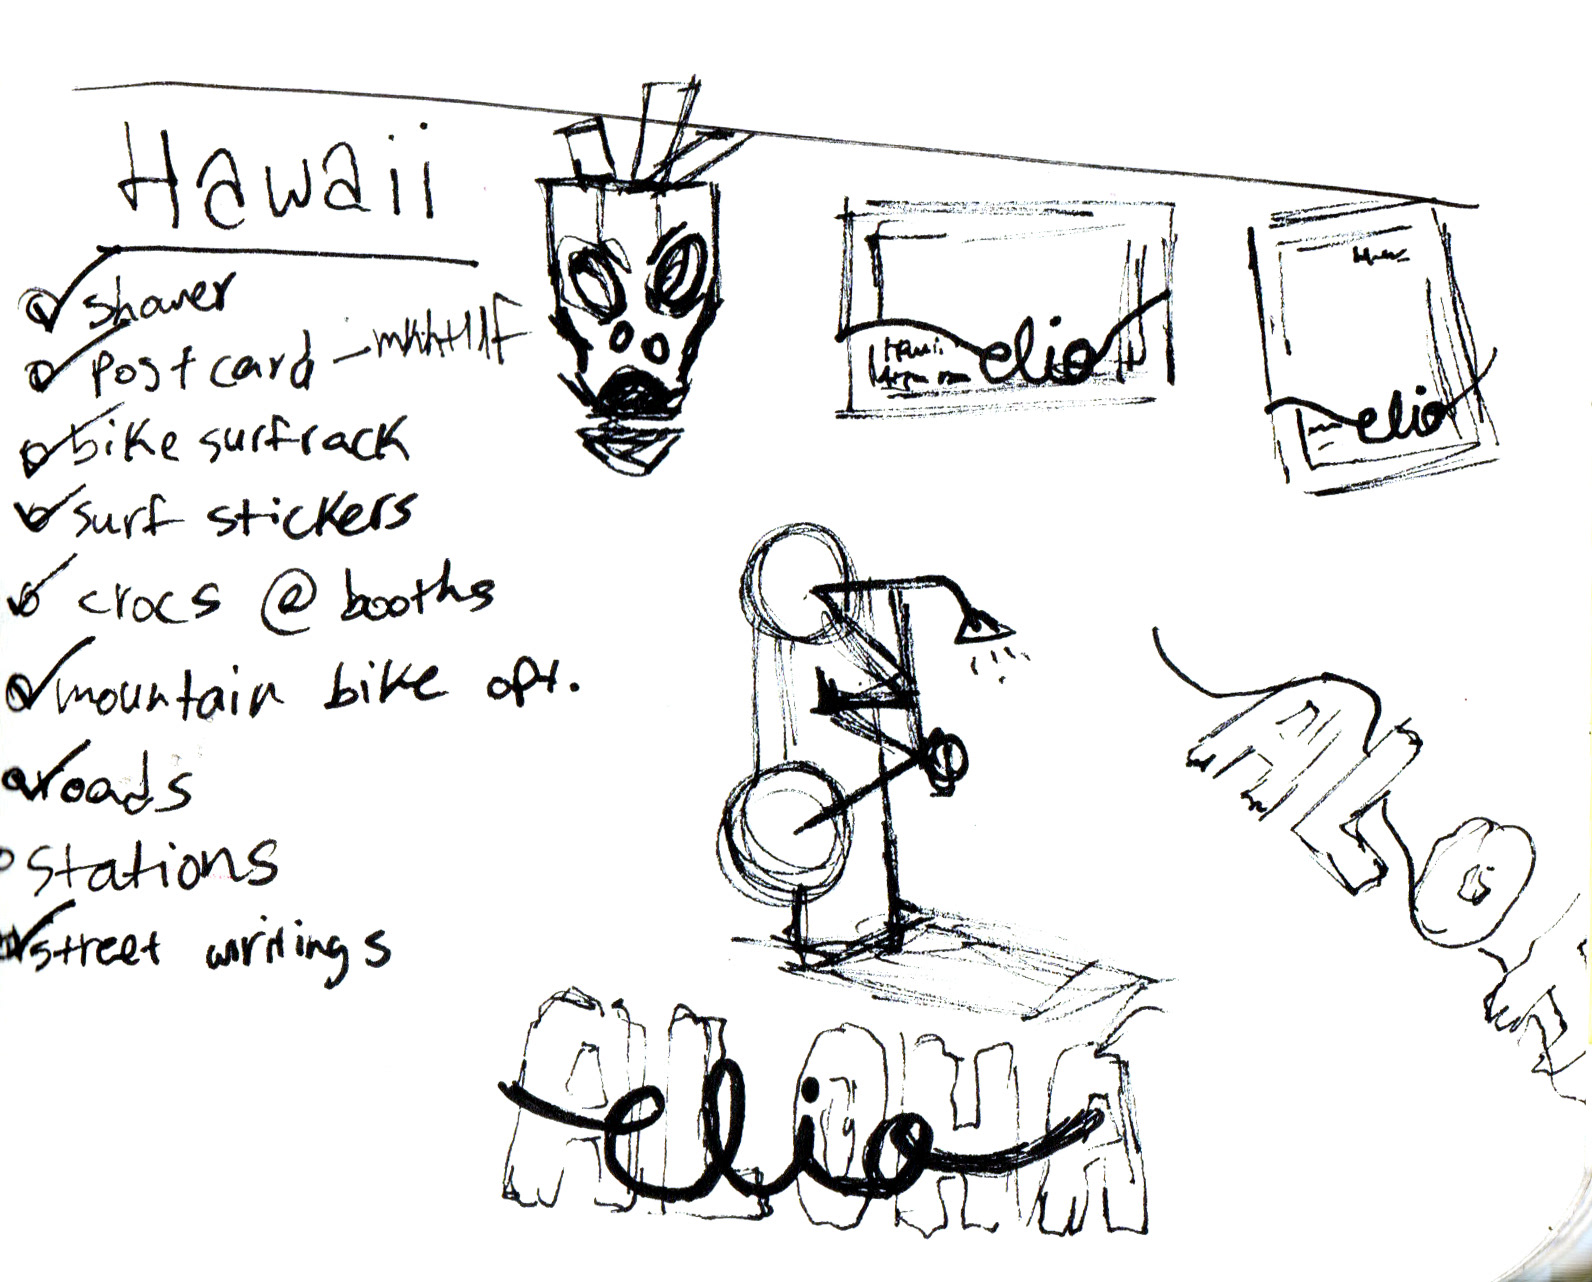 Hawaii
shower
postcard
bike surfrack
surf stickers
crocs @ booths
mountain bike opt.
roads
stations
street writings
elio
elio
ALOHA
elio
ALOHA